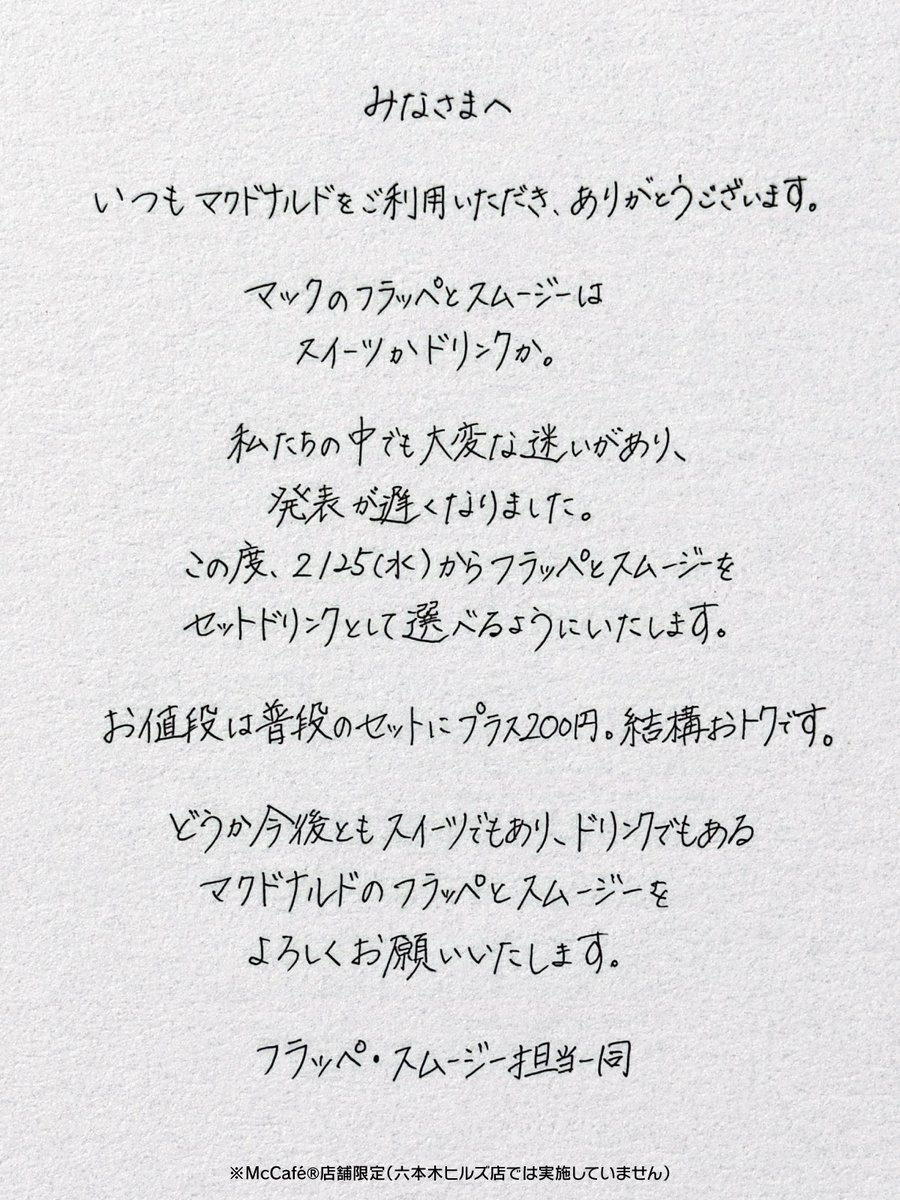 みなさまへ
いつもマクドナルドをご利用いただき、ありがとうございます。
マックのフラッペとスムージーは
スイーツかドリンクか。
私たちの中でも大変な迷いがあり、
発表が遅くなりました。
この度、2/25(水)からフラッペとスムージーを
セットドリンクとして選べるようにいたします。
お値段は普段のセットにプラス200円。結構おトクです。
どうか今後ともスイーツでもあり、ドリンクでもある
マクドナルドのフラッペとスムージーを
よろしくお願いいたします。
フラッペ・スムージー担当一同
※McCafé®店舗限定(六本木ヒルズ店では実施していません)